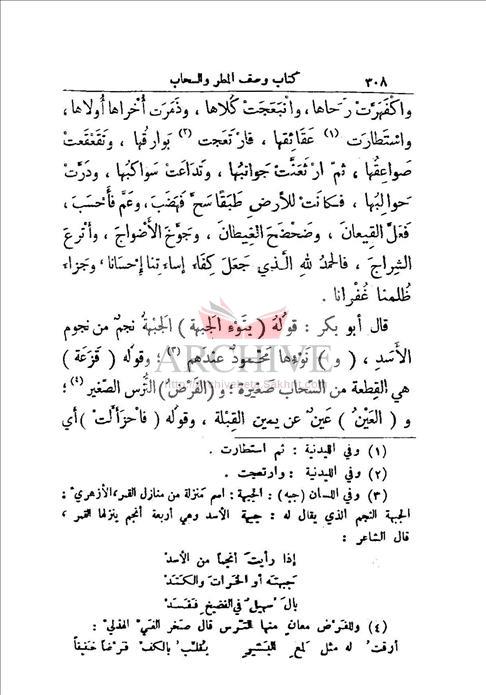 ٣٠٨ كتاب وصف المطر والسحاب
واكْفَهَرَّتْ رَحاها، وانْبَعَجَتْ كُلاها، وذَمَرَت أُخْراها أُولاها،
واسْتَطارَت (١) عَقائِقها، فارْتَعَجت (٢) بَوارِقُها، وتَقَعْقَعتْ
صَواعِقُها، ثمّ ارْثَعَنَّتْ جَوانبُها، وتَداعَتْ سَواكبُها، ودَرَّتْ
حَوالِبُها، فكانَتْ للأرضِ طَبَقًا سَحَّ فهَضَبَ، وعَمَّ فأَحْسَبَ،
فَعَلَّ القِيعانَ، وضَحْضَحَ الغِيطانَ، وجَوَّخَ الأَضْواجَ، وأَتْرعَ
الشِراجَ، فالحَمدُ للهِ الَّذي جَعَلَ كِفاءَ إساءتِنا إِحْسانًا، وجَزاءَ
ظُلمِنا غُفْرانا.
قال أبو بكر: قولُهُ (بِنَوْءِ الجَبهةِ) الجَبْهةُ نجمٌ من نجوم
الأَسَدِ، (و) نَوْءها مَحْمودٌ عِندَهم (٣)؛ وقولُه (قَزَعَة)
هي القِطعة من السَّحاب صَغيرة؛ و (القُرْصُ) التُّرس الصَّغير (٤)؛
و (العَيْنُ) عَينٌ عن يمين القِبْلة، وقولُه (فاحْزَأَلَّتْ) أي
(١) وفي الليدنية: ثم استطارت.
(٢) وفي الليدنية: وارتعجت.
(٣) وفي اللسان (جبه): الجبهة: اسم منزلة من منازل القمر، الأزهري:
الجبهة النجم الذي يقال له: جبهة الأسد وهي أربعة أنجم ينزلها القمر،
قال الشاعر:
إذا رأيتَ أنجمًا من الأسدْ
جبهتَه أو الخَرَاتَ والكَتَدْ
بالَ سُهيلٌ في الفضيخ ففَسَدْ
(٤) وللفَرْض معانٍ منها التُرس قال صخر الغَيّ الهذلي:
أرِقتُ له مثل لمعِ البَشيرِ يُقلّبُ بالكفّ فرْضًا خفيفًا
ARCHIVE